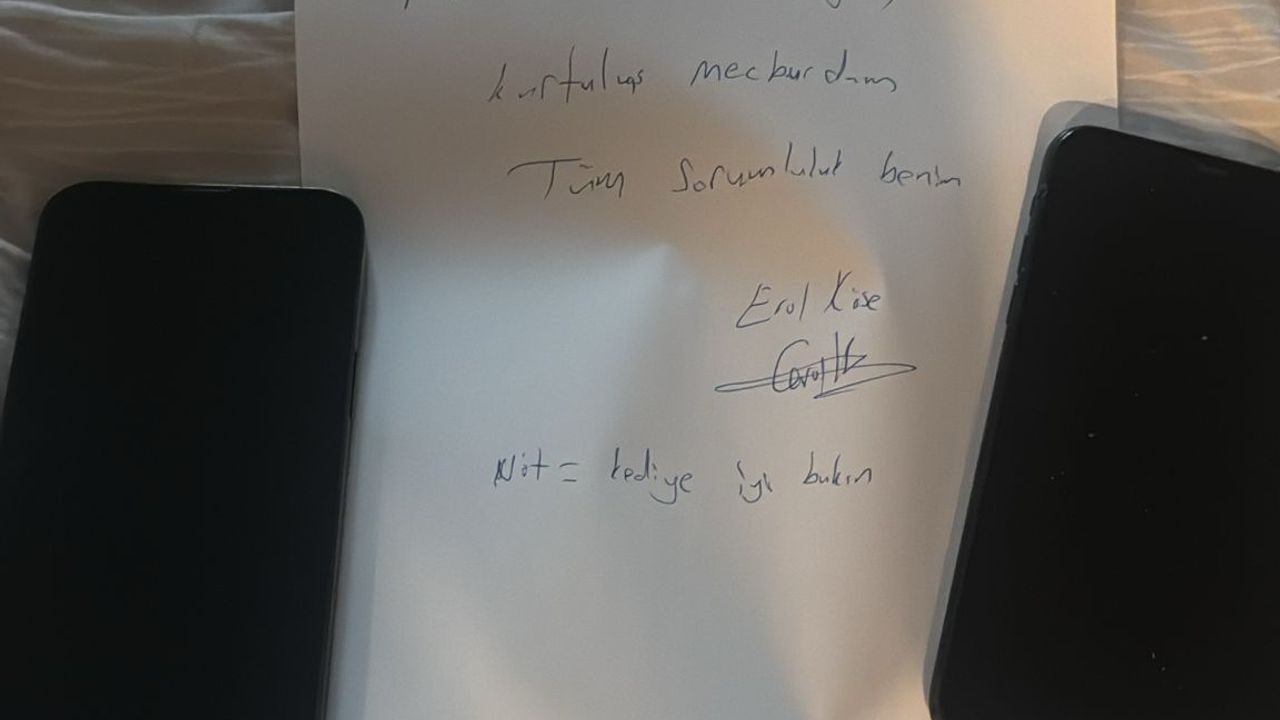 kurtuluş mecburdum
Tüm sorumluluk benim
Erol Köse
Not = kediye iyi bakın